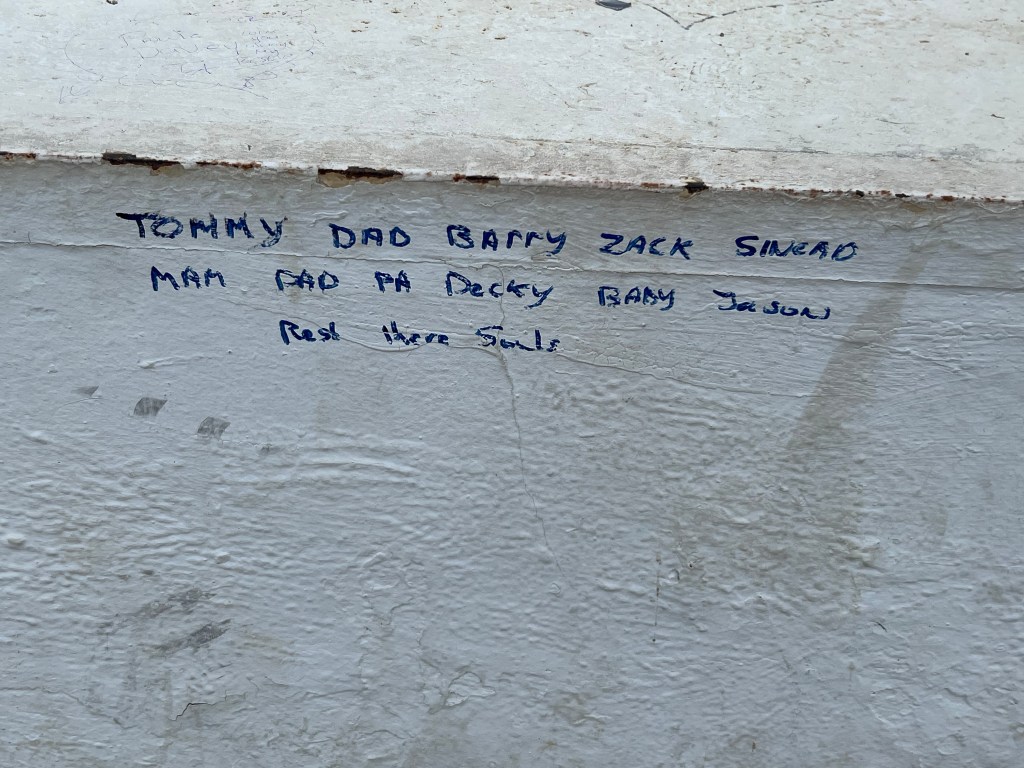 TOMMY DAD BARRY ZACK SINEAD
MAM DAD PA DECKY BABY JASON
Rest there Souls